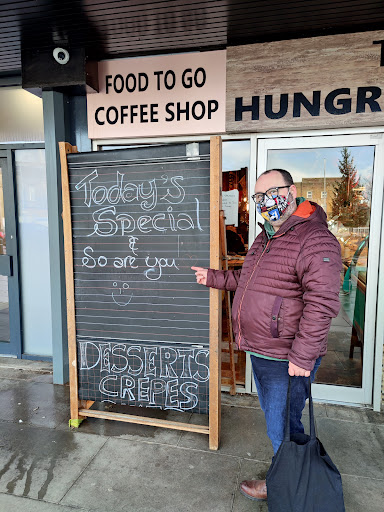 FOOD TO GO
COFFEE SHOP
HUNGR
Today's
Special
&
So are you
DESSERTS
CREPES